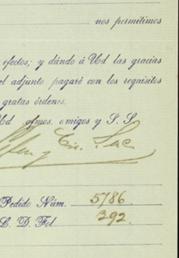 nos permitimos
efectos; y dándo á Ud las gracias
el adjunto pagaré con los requisitos
gratas órdenes.
Ud afmos. amigos y S. S.
Pedido Núm. 5786
L. D. Fol. 292